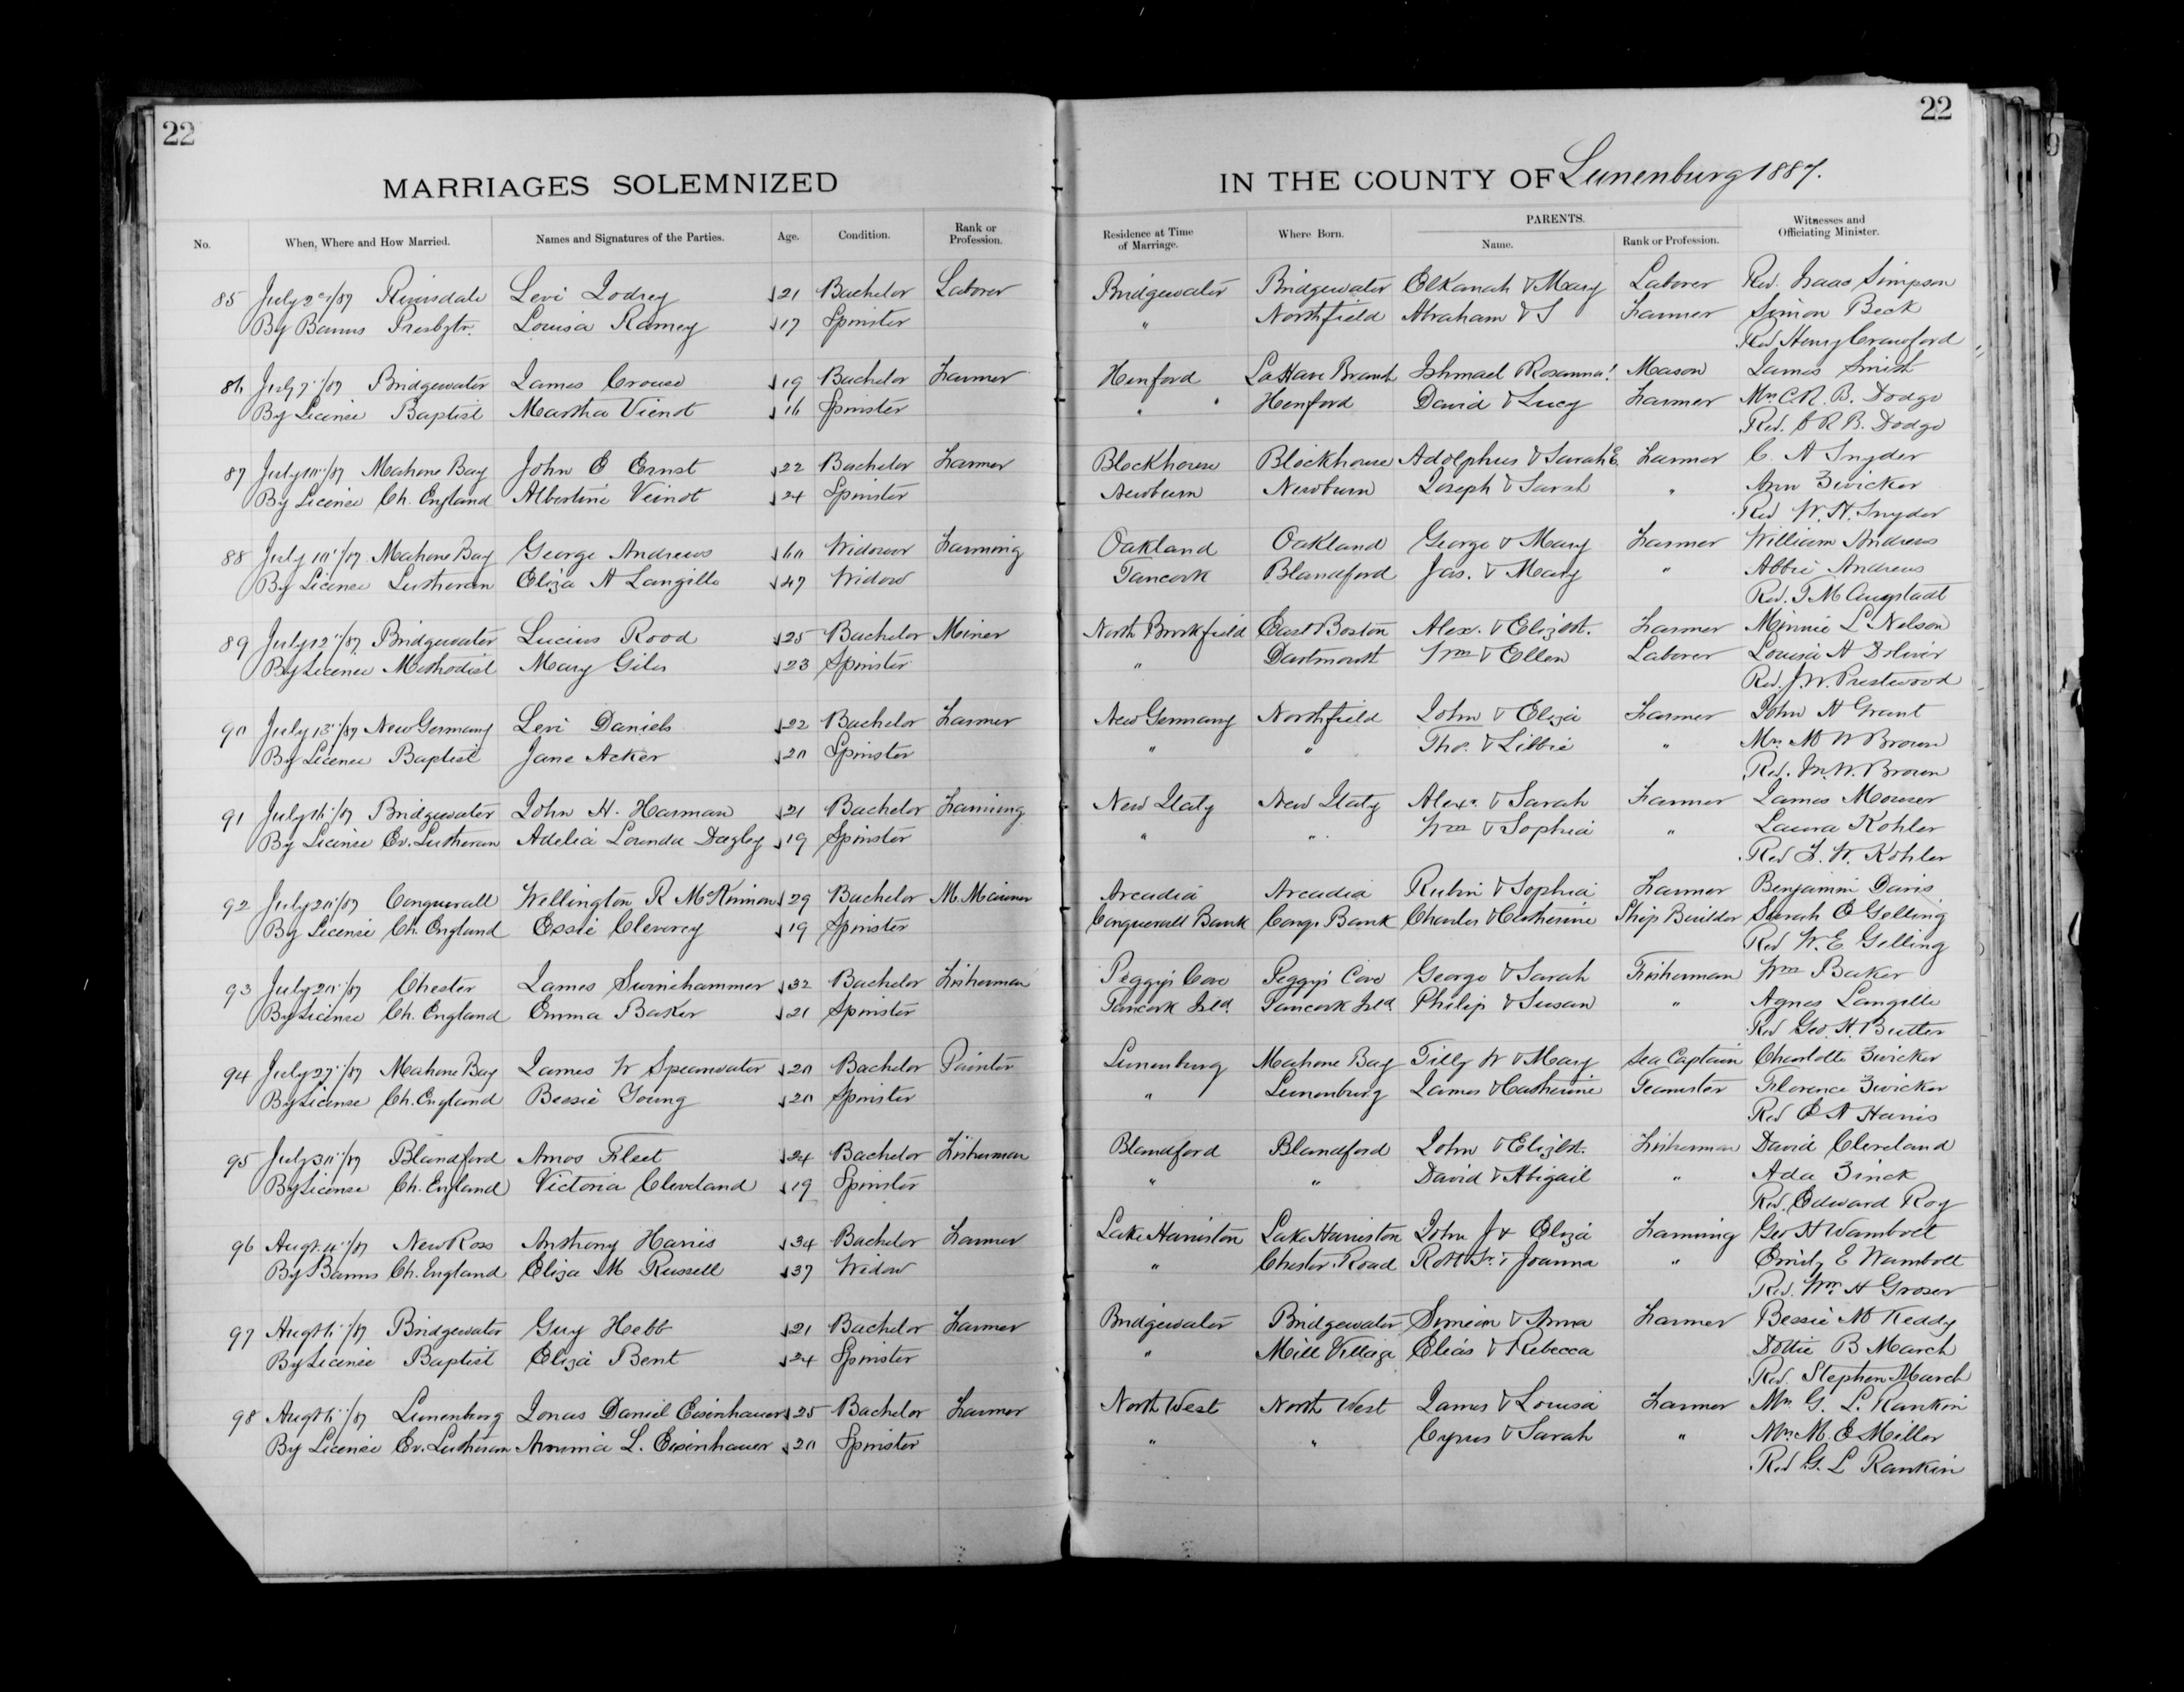 22
22
MARRIAGES SOLEMNIZED
IN THE COUNTY OF Lunenburg 1887.
No. When, Where and How Married. Names and Signatures of the Parties. Age. Condition. Rank or Profession. Residence at Time of Marriage. Where Born. PARENTS. Name. Rank or Profession. Witnesses and Officiating Minister.
85 July 2nd/87 Riversdale Levi Lodrey 21 Bachelor Laborer Bridgewater Bridgewater Elkanah & Mary Laborer Rev. Isaac Simpson
By Banns Presbytr. Louisa Ramey 17 Spinster " Northfield Abraham & S Farmer Simon Beck
Rev Henry Crawford
86 July 7"/87 Bridgewater James Crouse 19 Bachelor Farmer Henford LaHave Branch Ishmael Rosanna Mason James Smith
By License Baptist Martha Vienot 16 Spinster " " Henford David & Lucy Farmer Mrs C. R. B. Dodge
Rev. C R B. Dodge
87 July 10"/87 Mahone Bay John E Ernst 22 Bachelor Farmer Blockhouse Blockhouse Adolphus & Sarah E. Farmer C. A Snyder
By License Ch. England Albertine Veinot 24 Spinster Newburn Newburn Joseph & Sarah " Ann Zwicker
Rev W. H. Snyder
88 July 10"/87 Mahone Bay George Andrews 60 Widower Farming Oakland Oakland George & Mary Farmer William Andrews
By License Lutheran Eliza A Langille 47 Widow Tancook Blandford Jas. & Mary " Abbie Andrews
Rev. T M Angstadt
89 July 12"/87 Bridgewater Lucius Rood 25 Bachelor Miner North Brookfield East Boston Alex. & Elizbt. Farmer Minnie L Nelson
By License Methodist Mary Giles 23 Spinster " Dartmouth Wm & Ellen Laborer Louisa A Doliver
Rev. J. W. Prestwood
90 July 13"/87 New Germany Levi Daniels 22 Bachelor Farmer New Germany Northfield John & Eliza Farmer John H Grant
By License Baptist Jane Acker 20 Spinster " " Tho. & Libbie " Mrs M W Brown
Rev. M. W. Brown
91 July 16"/87 Bridgewater John H. Harman 21 Bachelor Farming New Italy New Italy Alexr. & Sarah Farmer James Mouser
By License Ev. Lutheran Adelia Lounda Dagley 19 Spinster " " Wm & Sophia " Laura Kohler
Rev F. W. Kohler
92 July 20"/87 Conquerall Wellington R McKinnon 29 Bachelor M. Mariner Arcadia Arcadia Rubin & Sophia Farmer Benjamin Davis
By License Ch. England Essie Cleverey 19 Spinster Conquerall Bank Conq. Bank Charles & Catherine Ship Builder Sarah E Gelling
Rev W. E. Gelling
93 July 20"/87 Chester James Swinehammer 32 Bachelor Fisherman Peggy's Cove Peggy's Cove George & Sarah Fisherman Wm Baker
By License Ch. England Emma Baker 21 Spinster Tancook Isld. Tancook Isld Philip & Susan " Agnes Langille
Rev Geo. H. Butler
94 July 27"/87 Mahone Bay James W Spearwater 20 Bachelor Painter Lunenburg Mahone Bay Tilly W & Mary Sea Captain Charlotte Zwicker
By License Ch. England Bessie Young 20 Spinster " Lunenburg James & Catherine Teamster Florence Zwicker
Rev E A Harris
95 July 30"/87 Blandford Amos Fleet 24 Bachelor Fisherman Blandford Blandford John & Elizbt. Fisherman David Cleveland
By License Ch. England Victoria Cleveland 19 Spinster " " David & Abigail " Ada Zinck
Rev. Edward Roy
96 Augt. 4"/87 New Ross Anthony Harris 34 Bachelor Farmer Lake Harriston Lake Harriston John J & Eliza Farming Geo H Wambolt
By Banns Ch. England Eliza M Russell 37 Widow " Chester Road Robt Sr. & Joanna " Emily E Wambolt
Rev. Wm. H Groser
97 Augt 6"/87 Bridgewater Guy Hebb 21 Bachelor Farmer Bridgewater Bridgewater Simeon & Anna Farmer Bessie M Keddy
By License Baptist Eliza Bent 24 Spinster " Mill Village Elias & Rebecca Dottie B March
Rev. Stephen March
98 Augt 6"/87 Lunenburg Jonas Daniel Eisenhauer 25 Bachelor Farmer North West North West James & Louisa Farmer Mrs G. L. Rankin
By License Ev. Lutheran Ammia L. Eisenhauer 20 Spinster " " Cyrus & Sarah " Mrs M. E Miller
Rev G. L Rankin